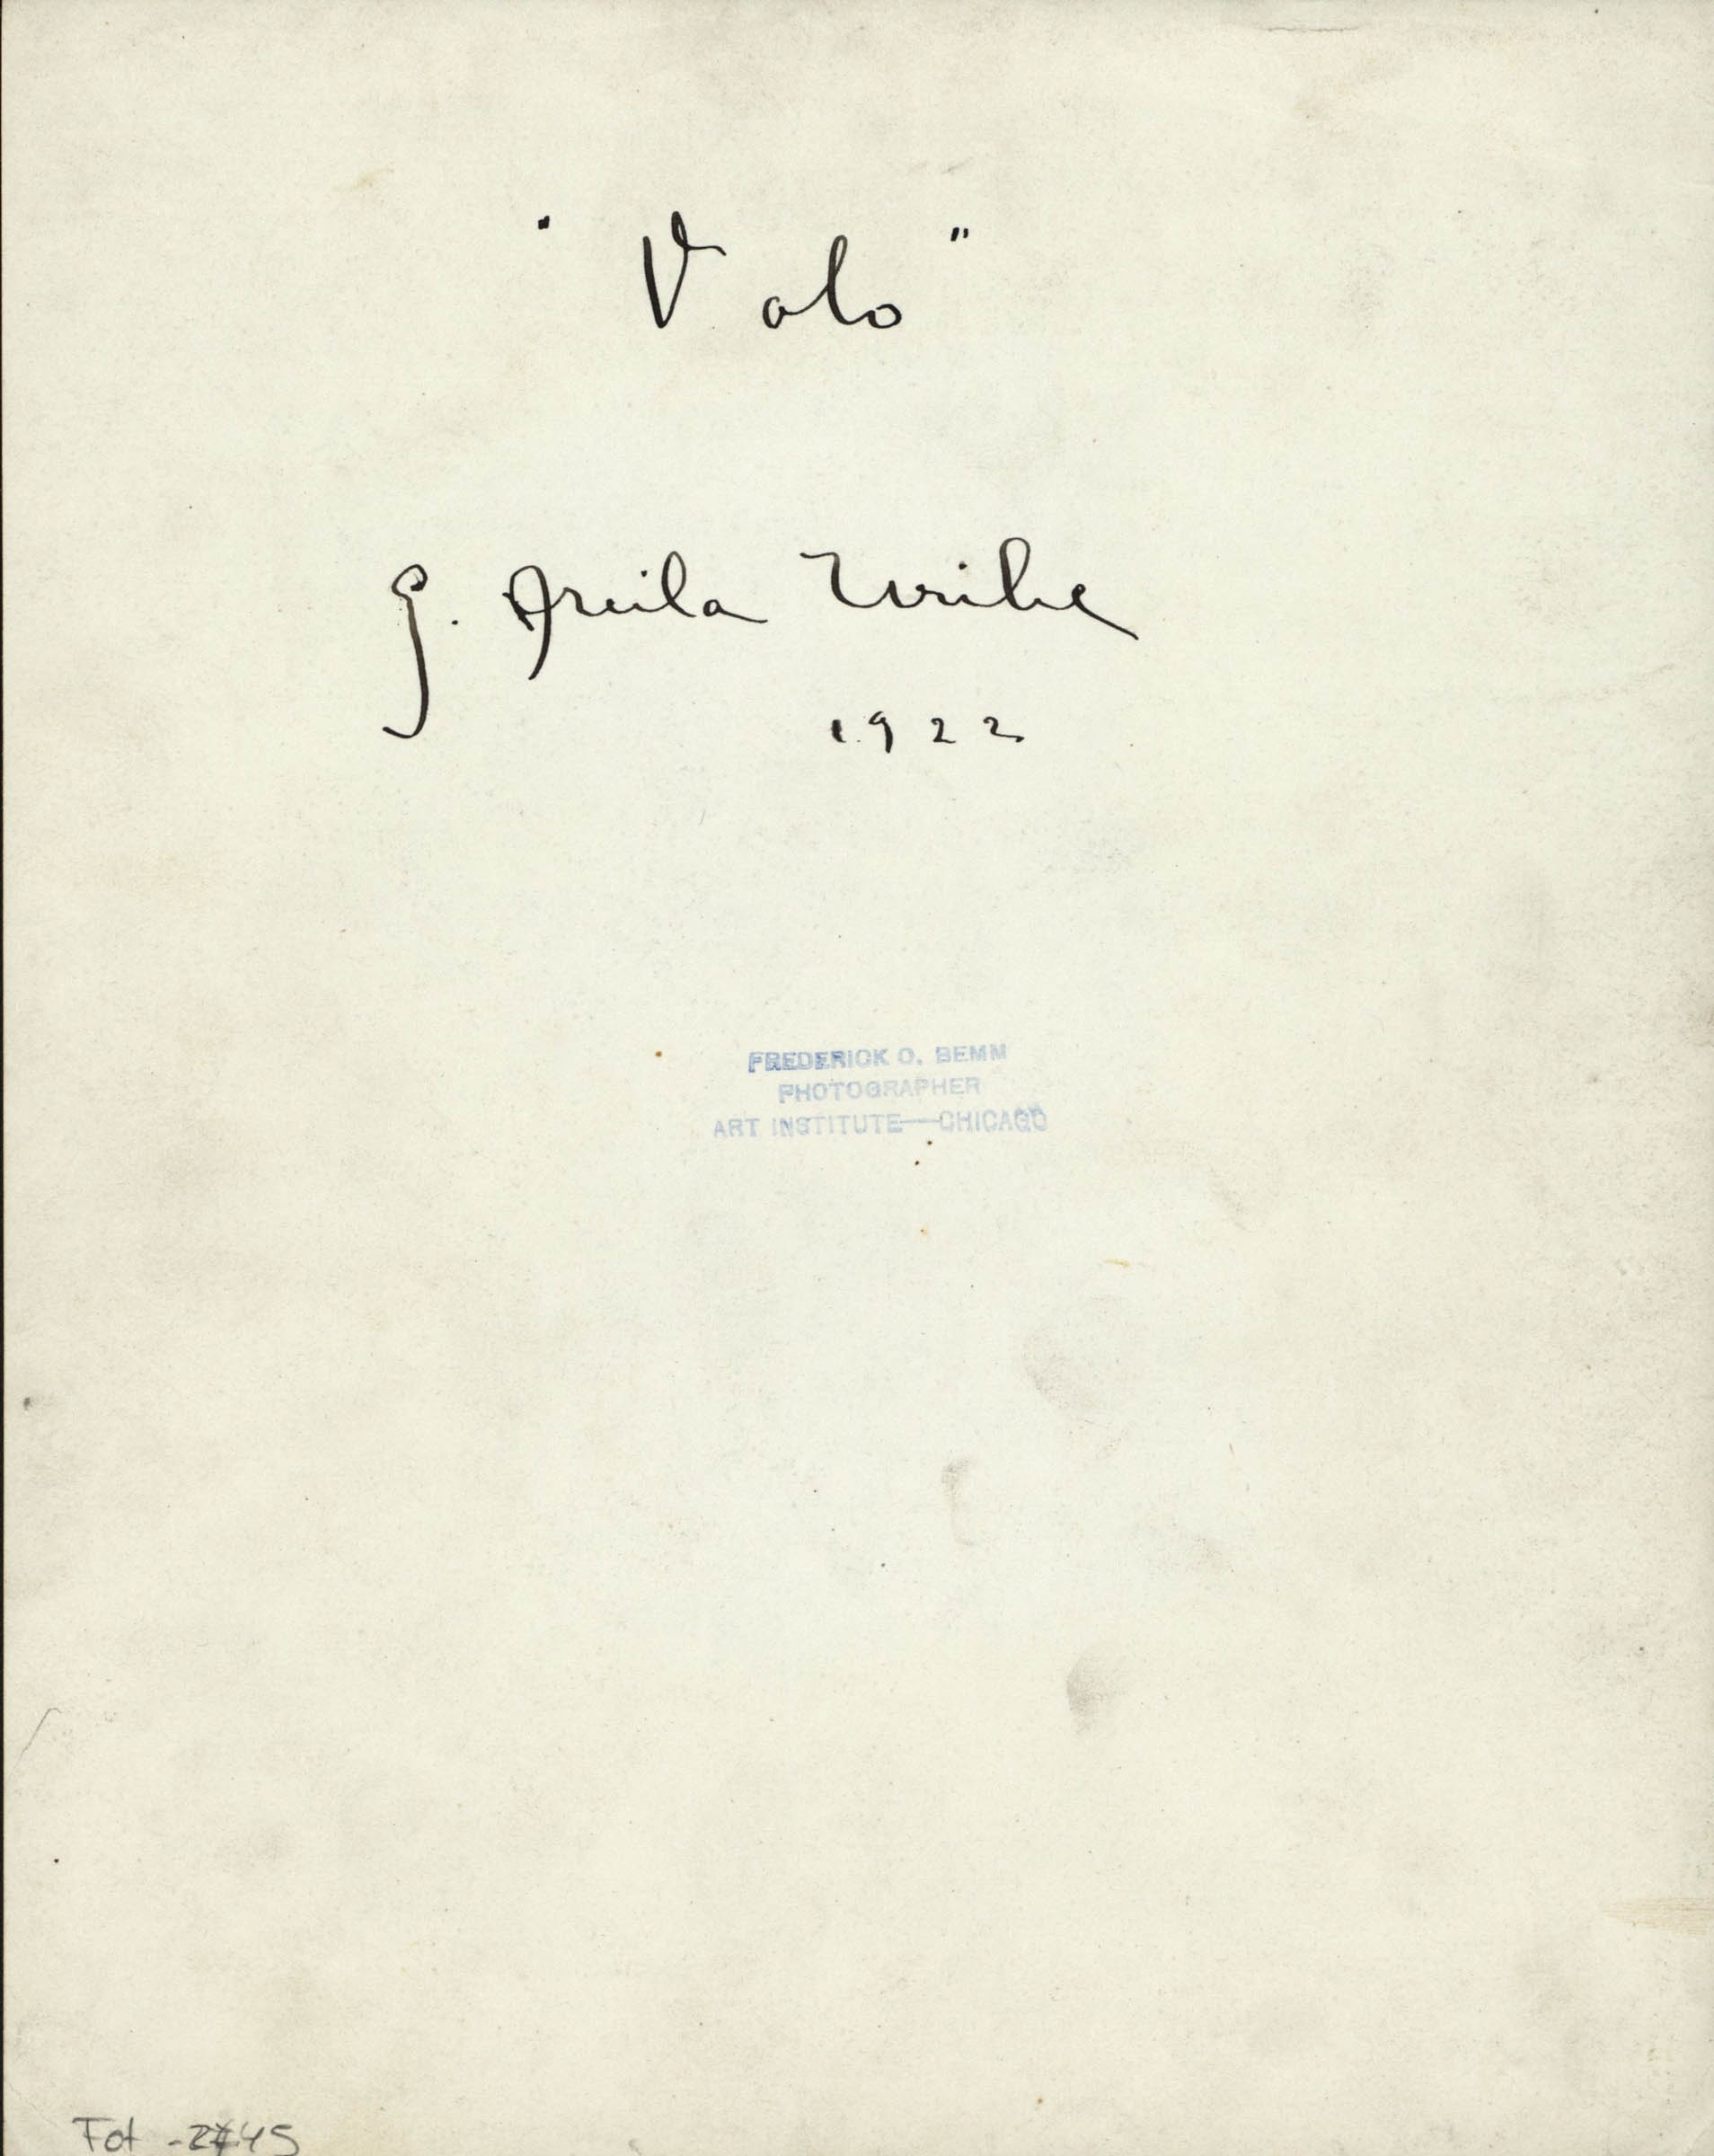 "Valo"
G. Arcila Uribe
1922
FREDERICK O. BEMM
PHOTOGRAPHER
ART INSTITUTE—CHICAGO
Fot -